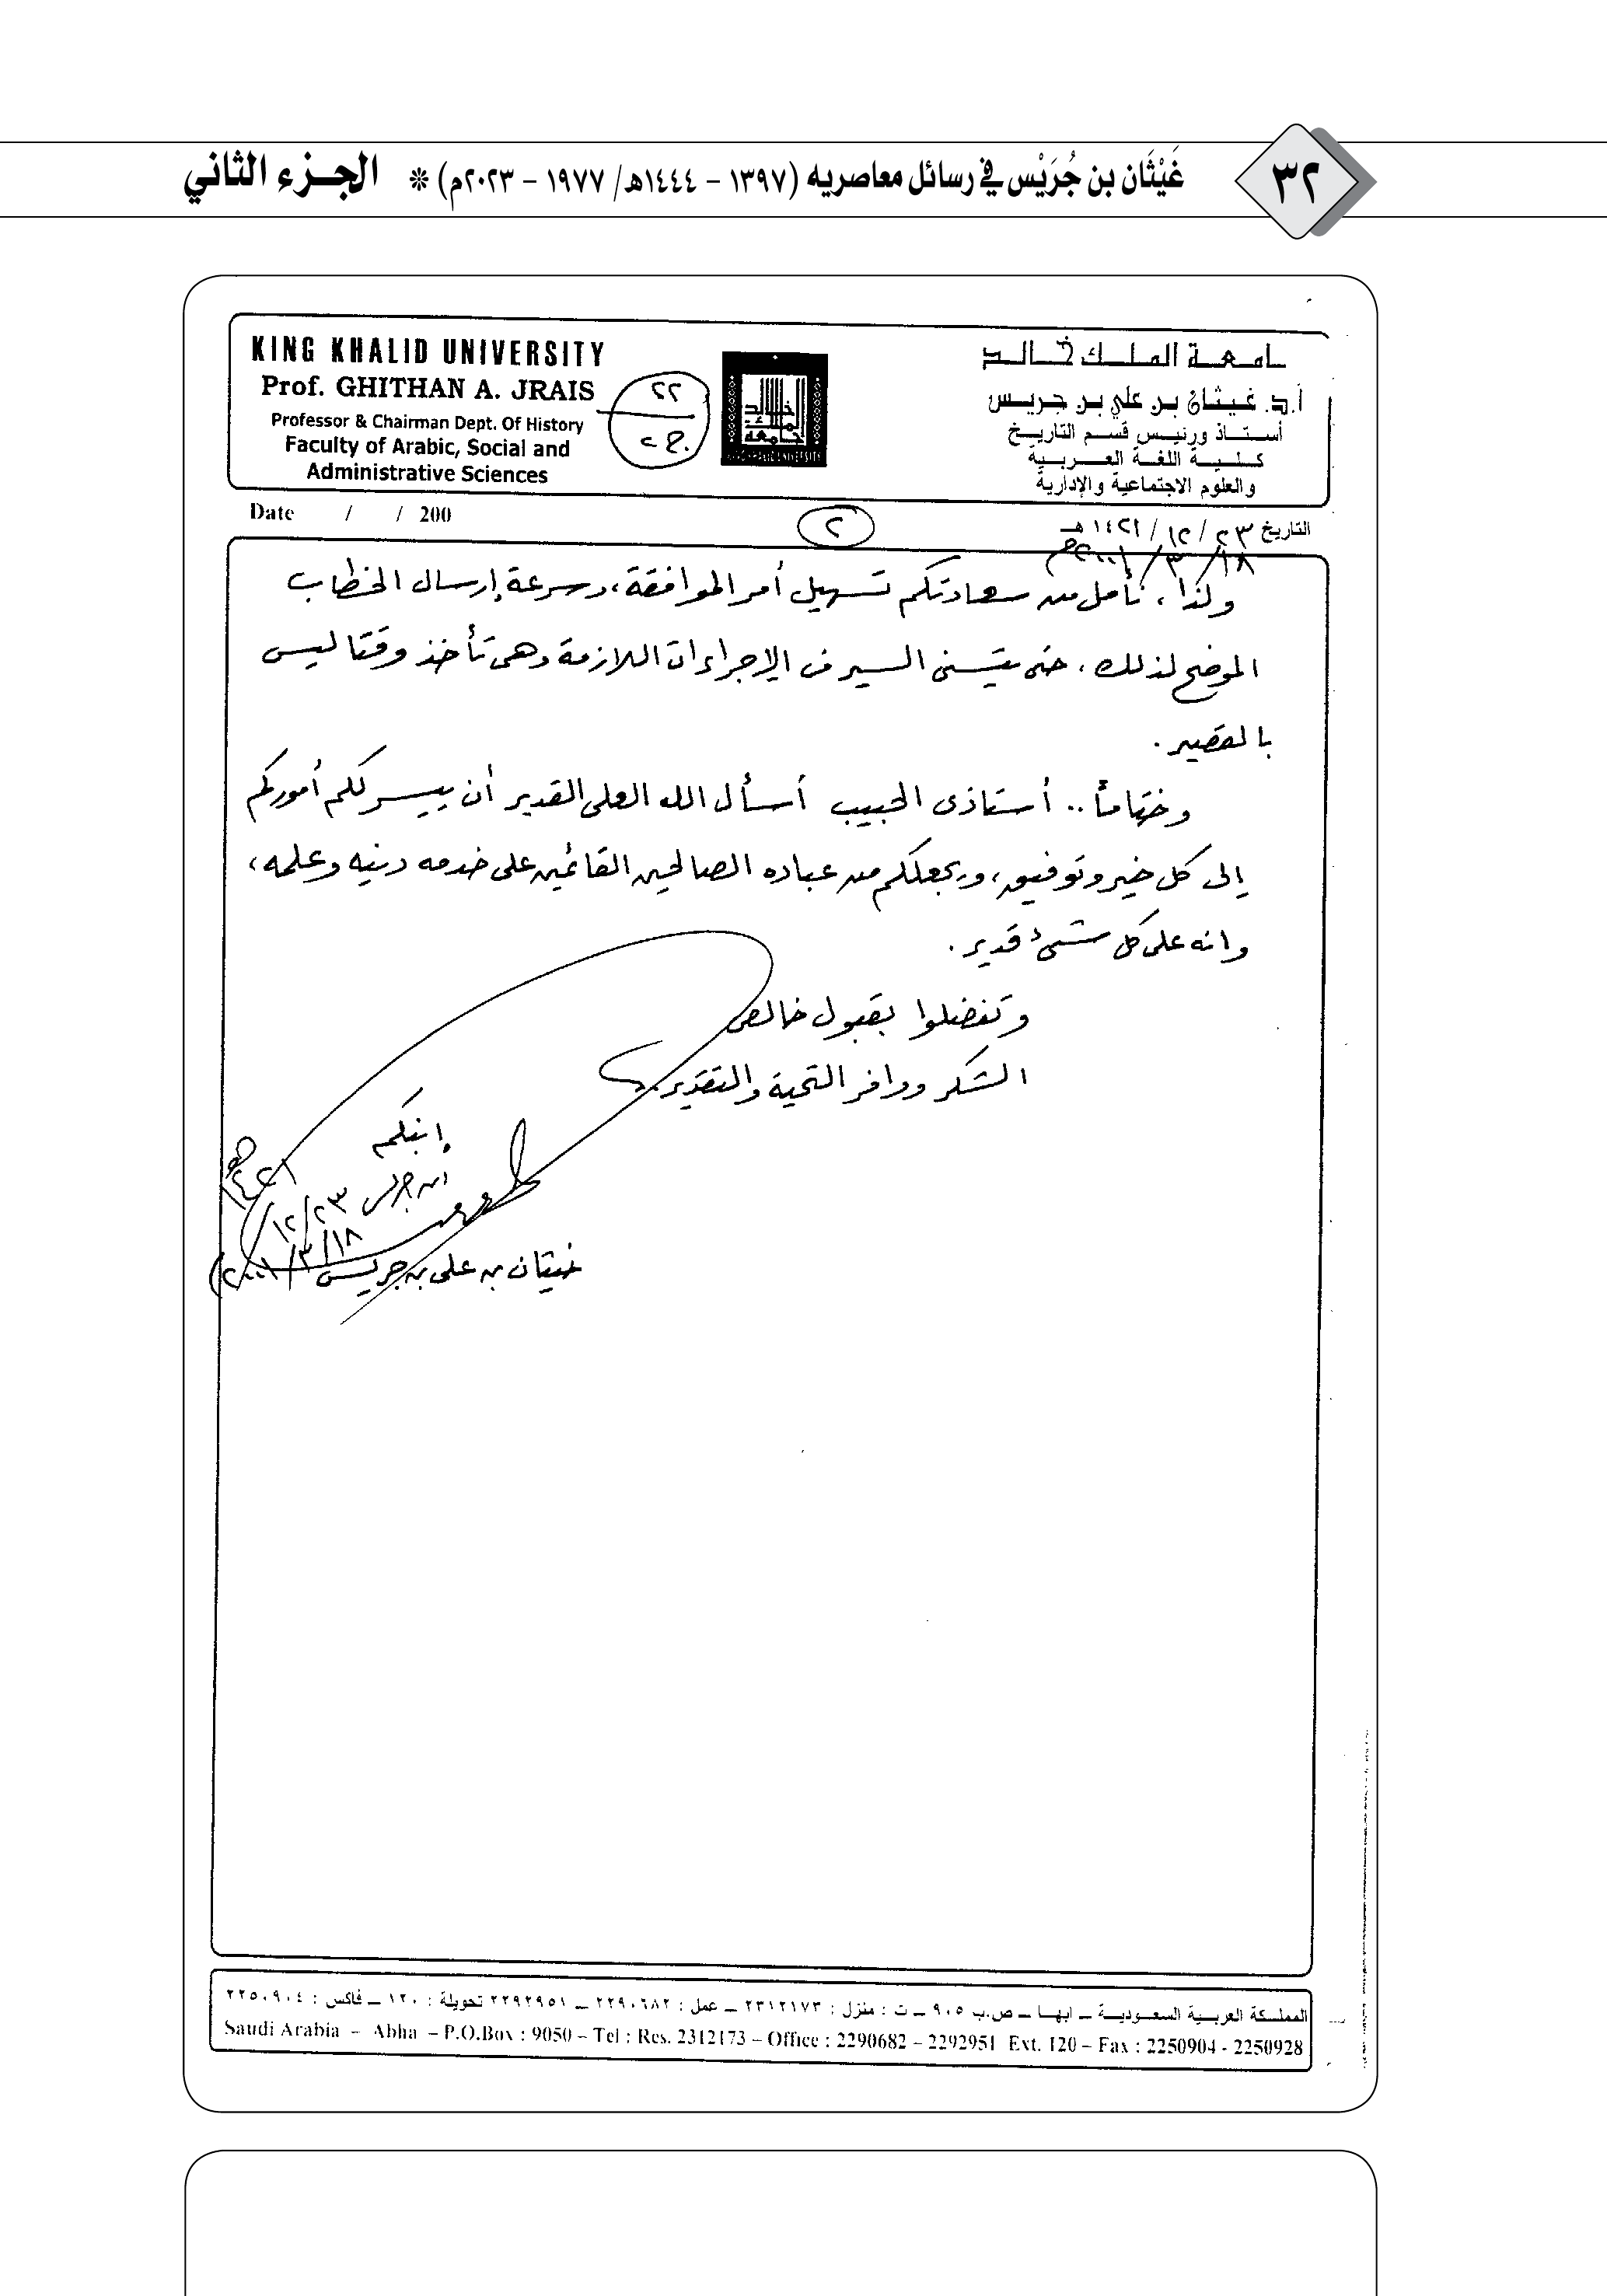 ٣٢
غَيْثَان بن جُرَيْس في رسائل معاصريه (١٣٩٧ - ١٤٤٤هـ/ ١٩٧٧ - ٢٠٢٣م) * الجزء الثاني
KING KHALID UNIVERSITY
Prof. GHITHAN A. JRAIS
Professor & Chairman Dept. Of History
Faculty of Arabic, Social and
Administrative Sciences
٢٢
جامعة الملك خالد
أ.د. غيثان بن علي بن جريس
أستاذ ورئيس قسم التاريخ
كلية اللغة العربية
والعلوم الاجتماعية والإدارية
Date / / 200
٢
التاريخ ٢٣ / ١٢ / ١٤٢١ هـ
١٨ / ٣ / ٢٠٠١م
ولذا، نأمل من سعادتكم تسهيل أمر الموافقة، وسرعة إرسال الخطاب
الموضح لذلك، حتى يتسنى السير في الإجراءات اللازمة وهي تأخذ وقتا ليس
بالقصير.
وختاماً .. أستاذي الحبيب أسأل الله العلي القدير أن ييسر لكم أموركم
إلى كل خير وتوفيق، ويجعلكم من عباده الصالحين القائمين على خدمه دينه وعلمه،
وانه على كل شيء قدير.
وتفضلوا بقبول خالص
الشكر ووافر التحية والتقدير.
إبنكم
ابن جريس ٢٣/١٢/١٤٢١هـ
غيثان بن علي بن جريس (١٨/٣/٢٠٠١
المملكة العربية السعودية – ابها – ص.ب ٩٠٥ – ت : منزل : ٢٣١٢١٧٣ – عمل : ٢٢٩٠٦٨٢ – ٢٢٩٢٩٥١ تحويلة : ١٢٠ – فاكس : ٢٢٥٠٩٠٤
Saudi Arabia – Abha – P.O.Box : 9050 – Tel : Res. 2312173 – Office : 2290682 – 2292951 Ext. 120 – Fax : 2250904 - 2250928